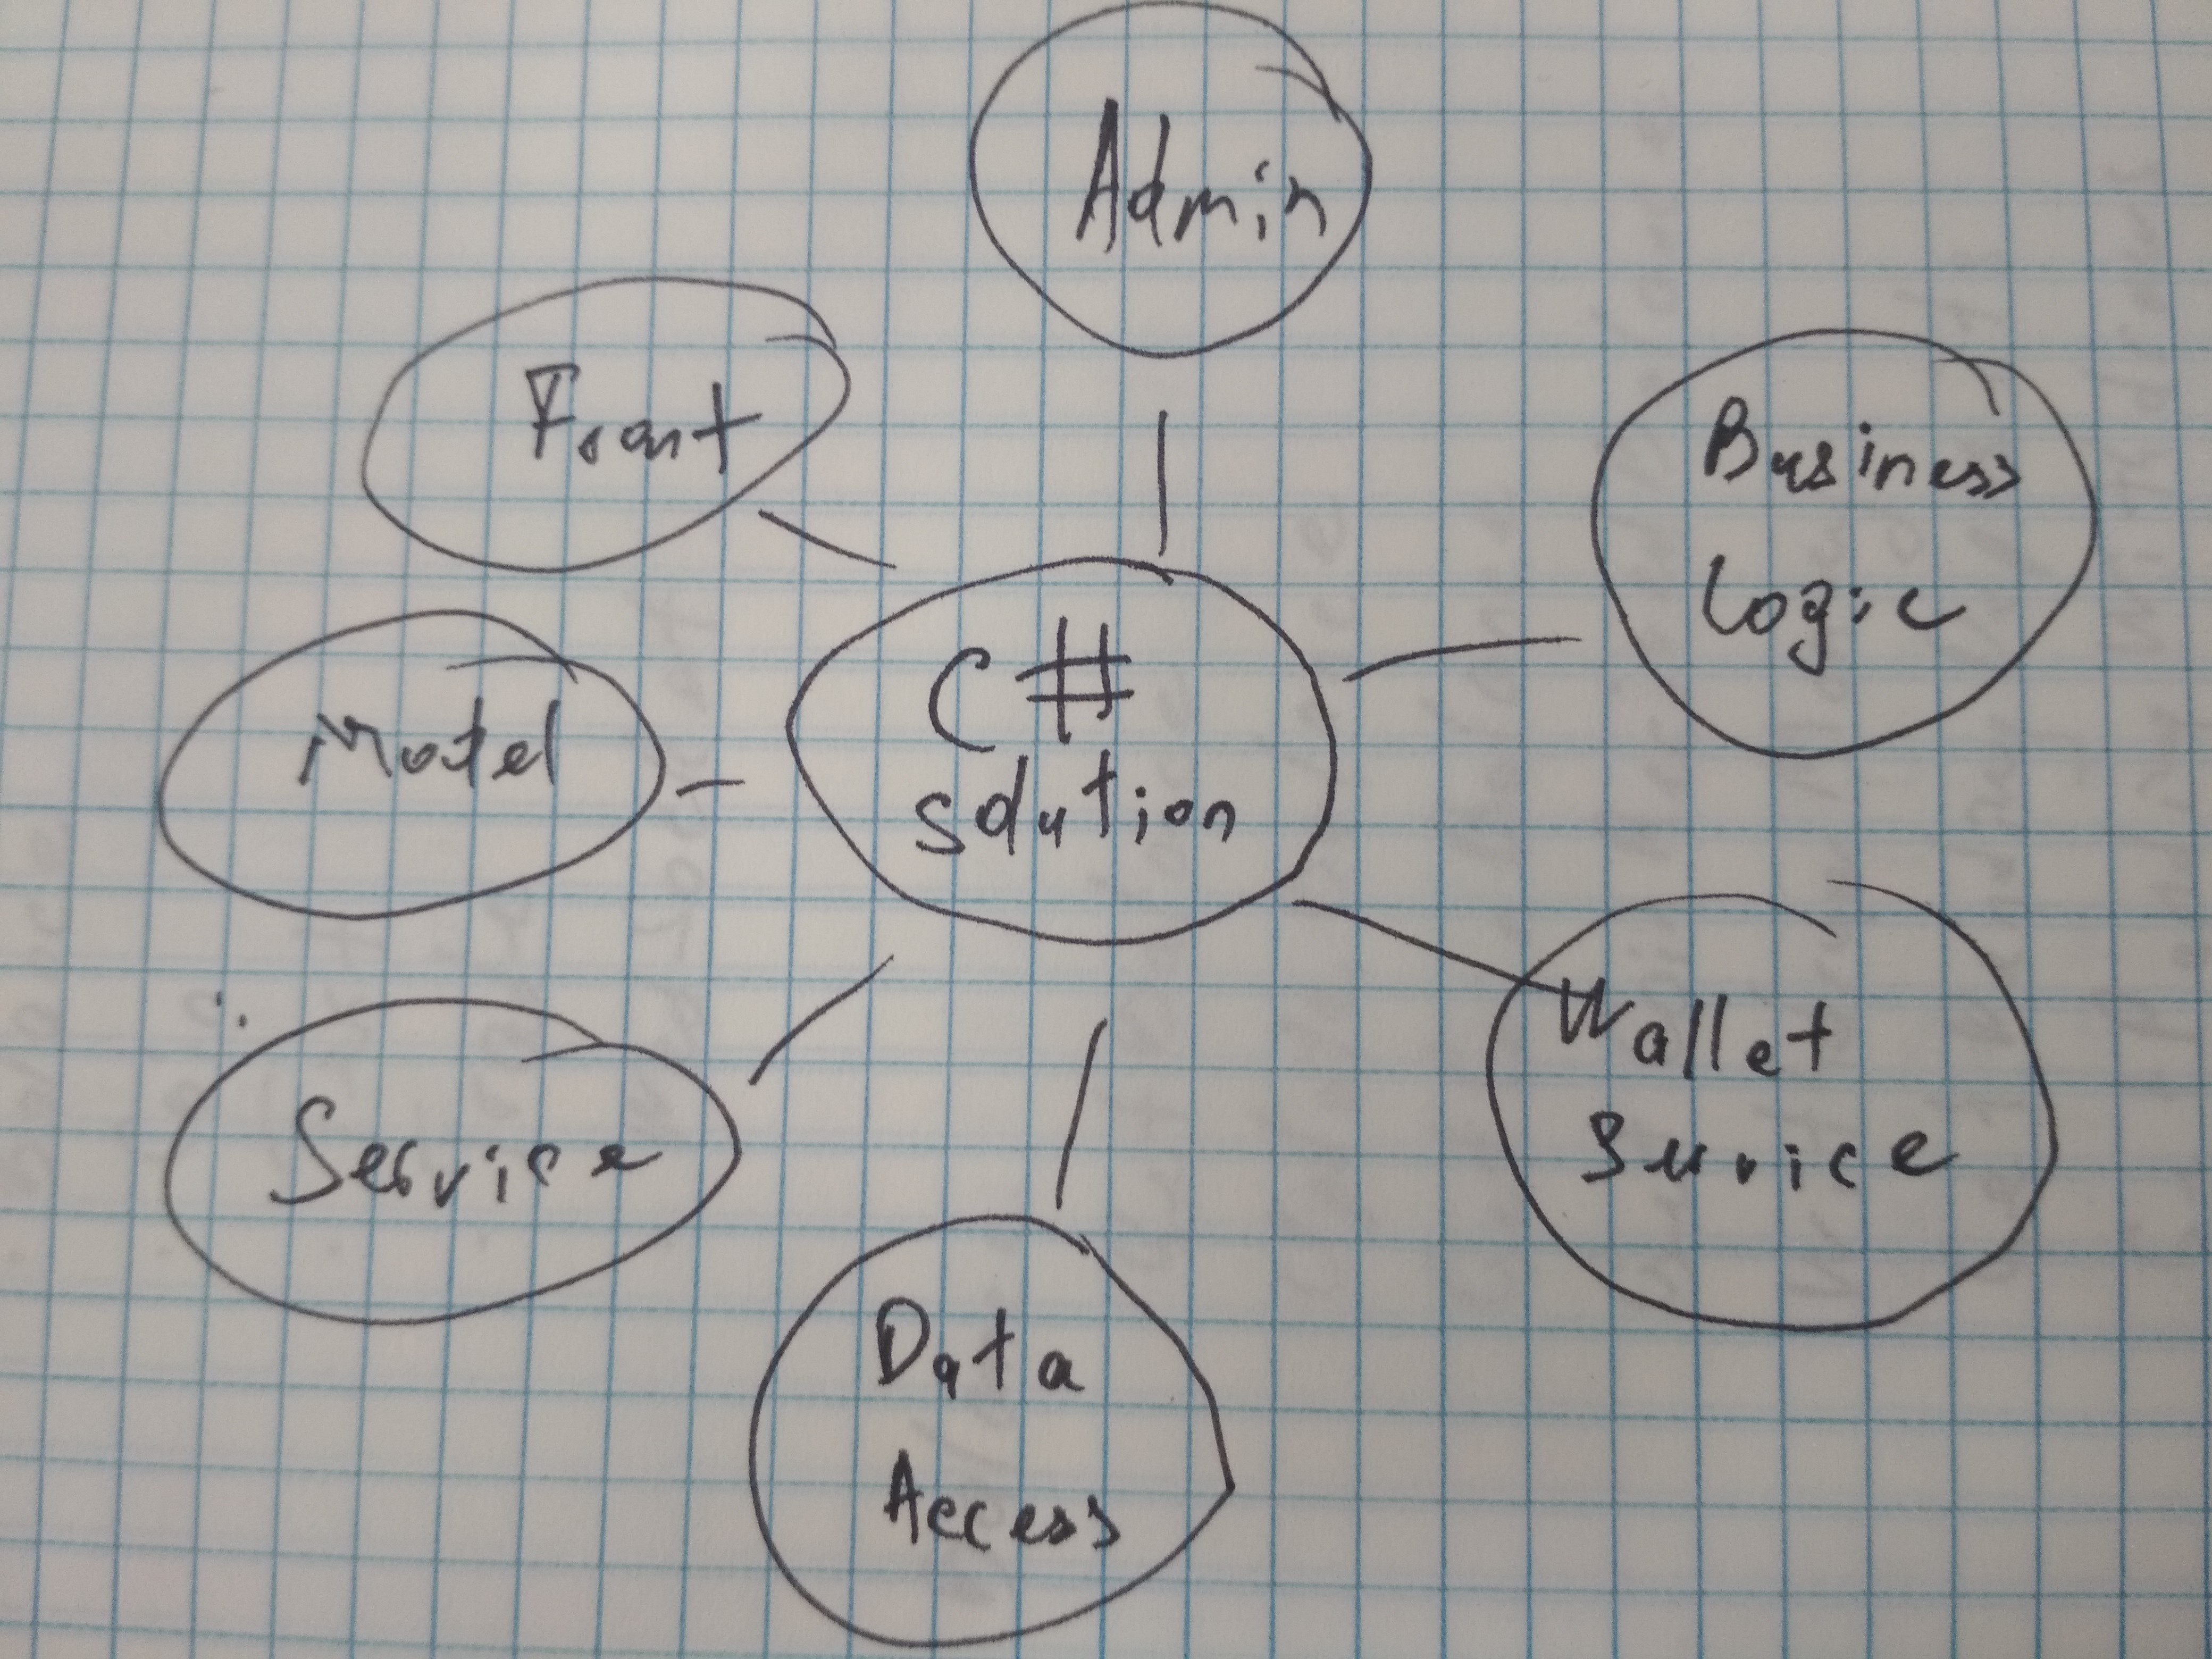 Admin
Front
Business
Logic
Model
C#
solution
Wallet
Service
Service
Data
Access